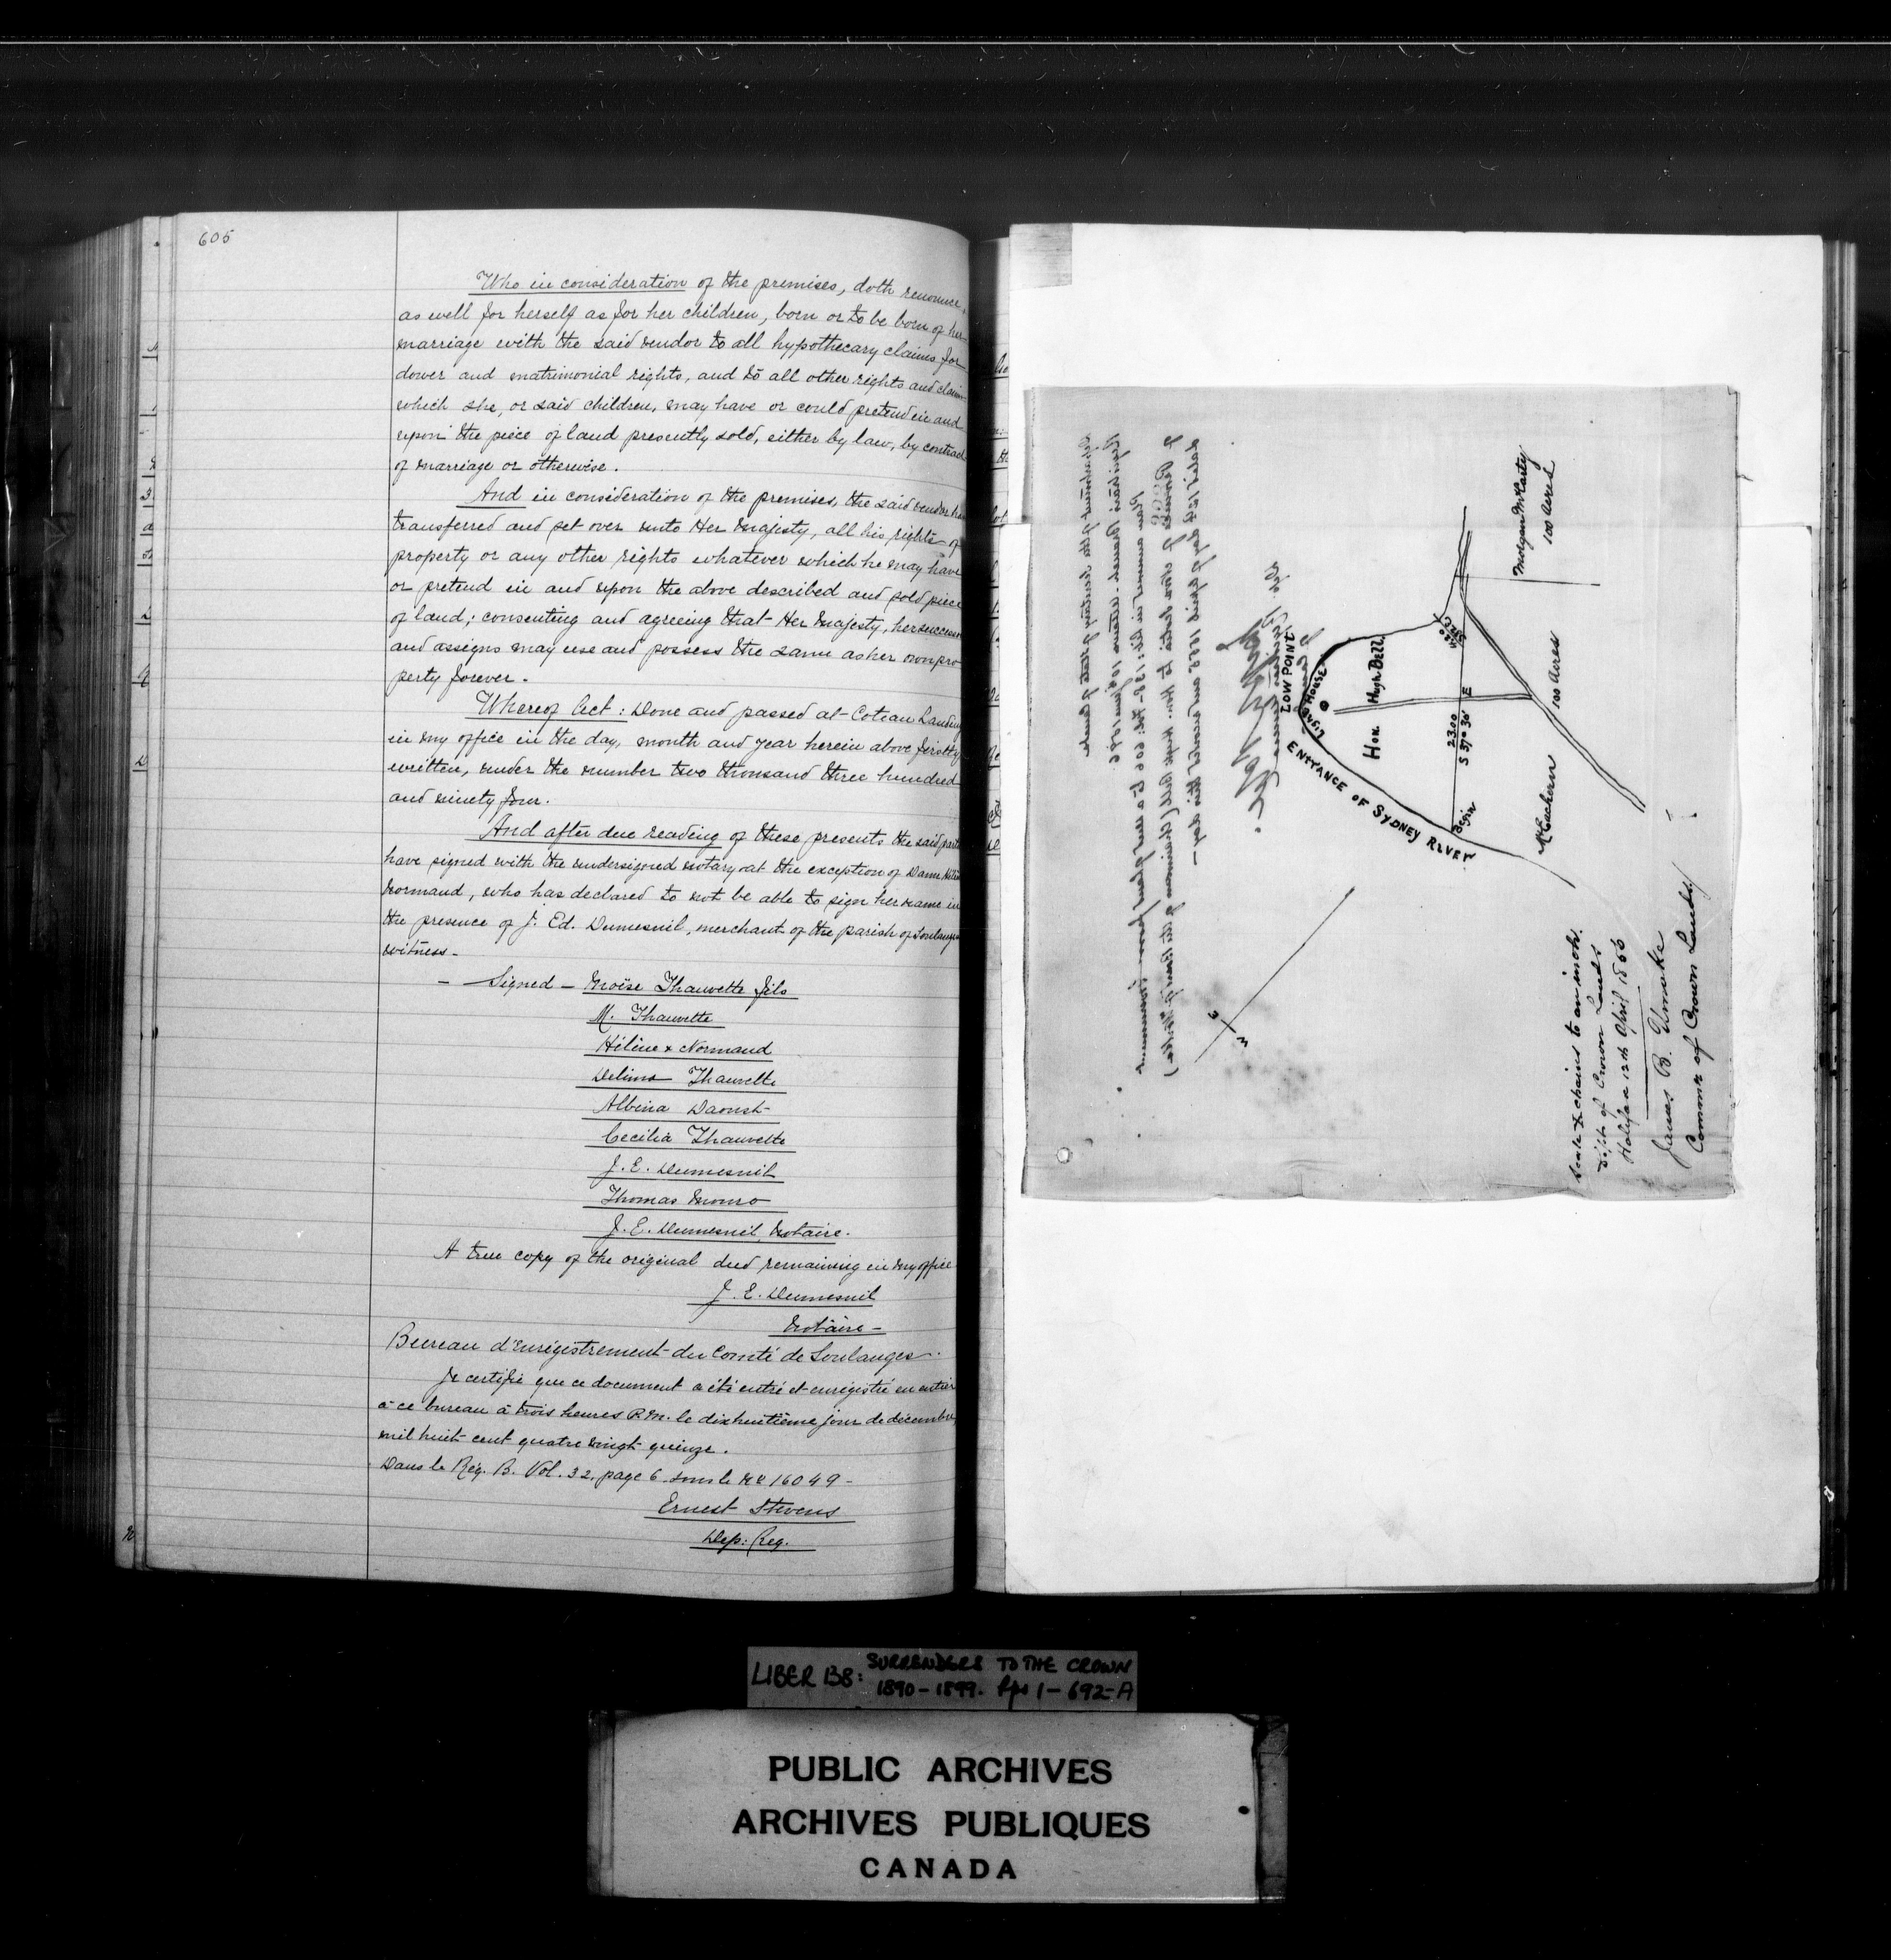 605
Who in consideration of the premises, doth renounce
as well for herself as for her children, born or to be born of her
marriage with the said vendor to all hypothecary claims for
dower and matrimonial rights, and to all other rights and claims
which she, or said children, may have or could pretend in and
upon the piece of land presently sold, either by law, by contract
of marriage or otherwise.
And in consideration of the premises, the said vendor has
transferred and set over unto Her Majesty, all his rights of
property or any other rights whatever which he may have
or pretend in and upon the above described and sold piece
of land; consenting and agreeing that Her Majesty, her successors
and assigns may use and possess the same as her own pro
perty forever.
Whereof Act: Done and passed at Coteau Landing
in my office in the day, month and year herein above firstly
written, under the number two thousand three hundred
and ninety four.
And after due reading of these presents the said parties
have signed with the undersigned notary at the exception of Dame Hélène
Normand, who has declared to not be able to sign her name in
the presence of J. Ed. Dumesnil, merchant of the parish of Soulanges
witness-
- Signed - Moïse Thauvette fils
M. Thauvette
Hélène x Normand
Delima Thauvette
Albina Daoust
Cecilia Thauvette
J. E. Dumesnil
Thomas Monro
J. E. Dumesnil, Notaire.
A true copy of the original deed remaining in my office
J. E. Dumesnil
Notaire-
Bureau d'enrégistrement du Comté de Soulanges.
Je certifie que ce document a été entré et enrégistré en entier
à ce bureau à trois heures P.M. le dixhuitième jour de décembre,
mil huit cent quatre vingt quinze.
Dans le Rég. B. Vol. 32, page 6 sous le No 16049-
Ernest Stevens
Dep: Reg.
LOW POINT
LIGHT HOUSE
ENTRANCE OF SYDNEY RIVER
Hon. Hugh Bell
2300
S 37° 30' E
Begin
McEachern 100 Acres
Morgan McCarty
100 Acres
Scale chains to an inch.
Dept of Crown Lands
Halifax 12th April 1855
James B. Uniacke
Commr of Crown Lands
LIBER 138: SURRENDERS TO THE CROWN
1890-1899. Pps 1-692-A
PUBLIC ARCHIVES
ARCHIVES PUBLIQUES
CANADA